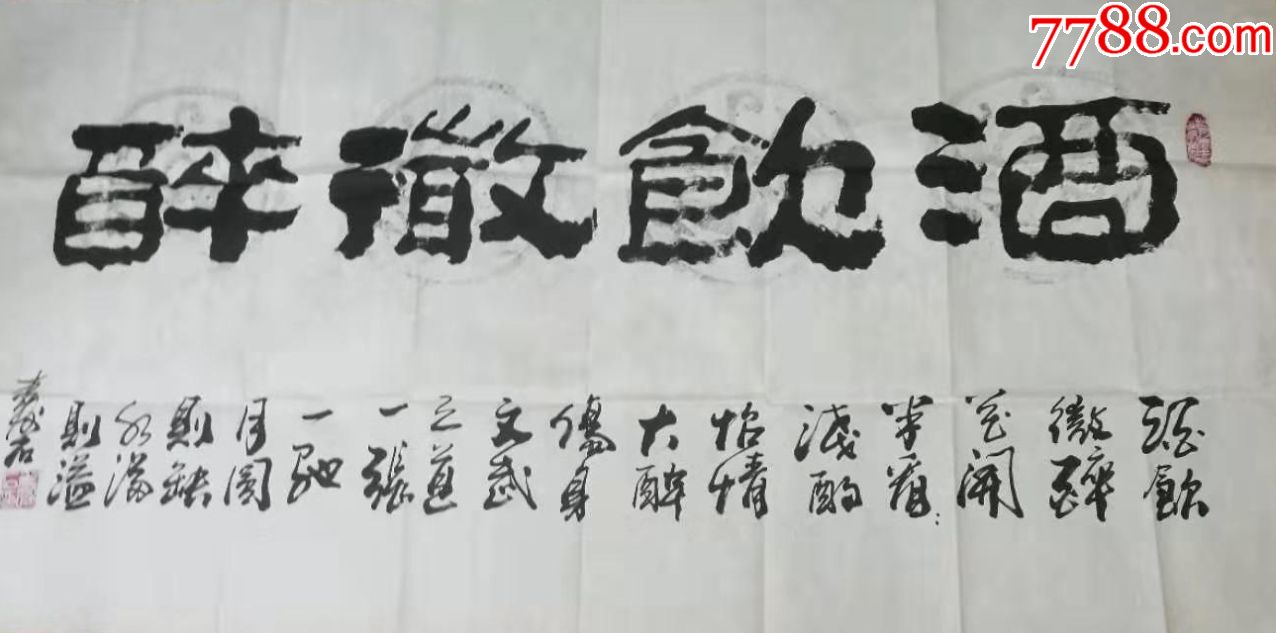 7788.com
酒飲微醉
酒飲
微醉
花開
半看
淺酌
怡情
大醉
傷身
文武
之道
一張
一弛
月圓
則缺
水滿
則溢